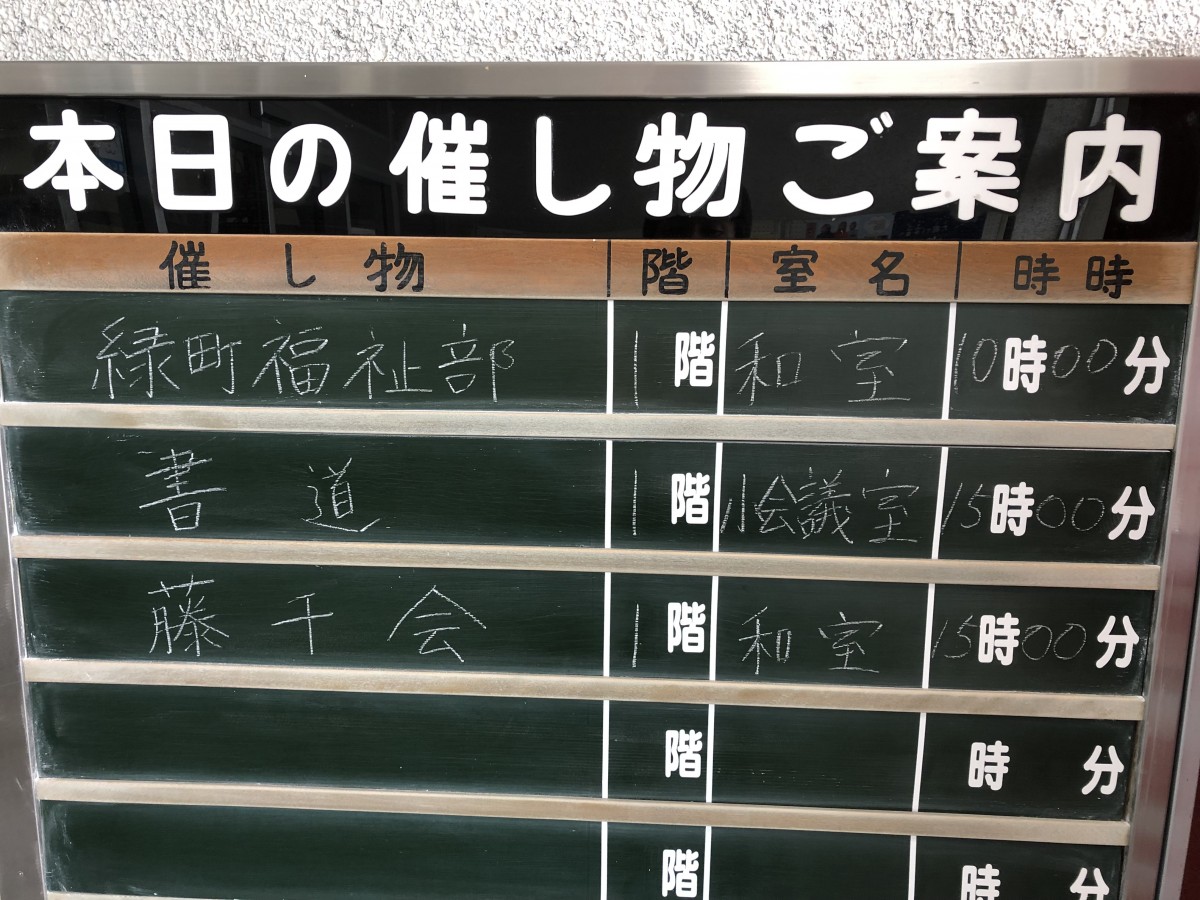 本日の催し物ご案内
催し物 階 室名 時時
緑町福祉部 1階 和室 10時00分
書道 1階 小会議室 15時00分
藤千会 1階 和室 15時00分
階 時 分
階 時 分